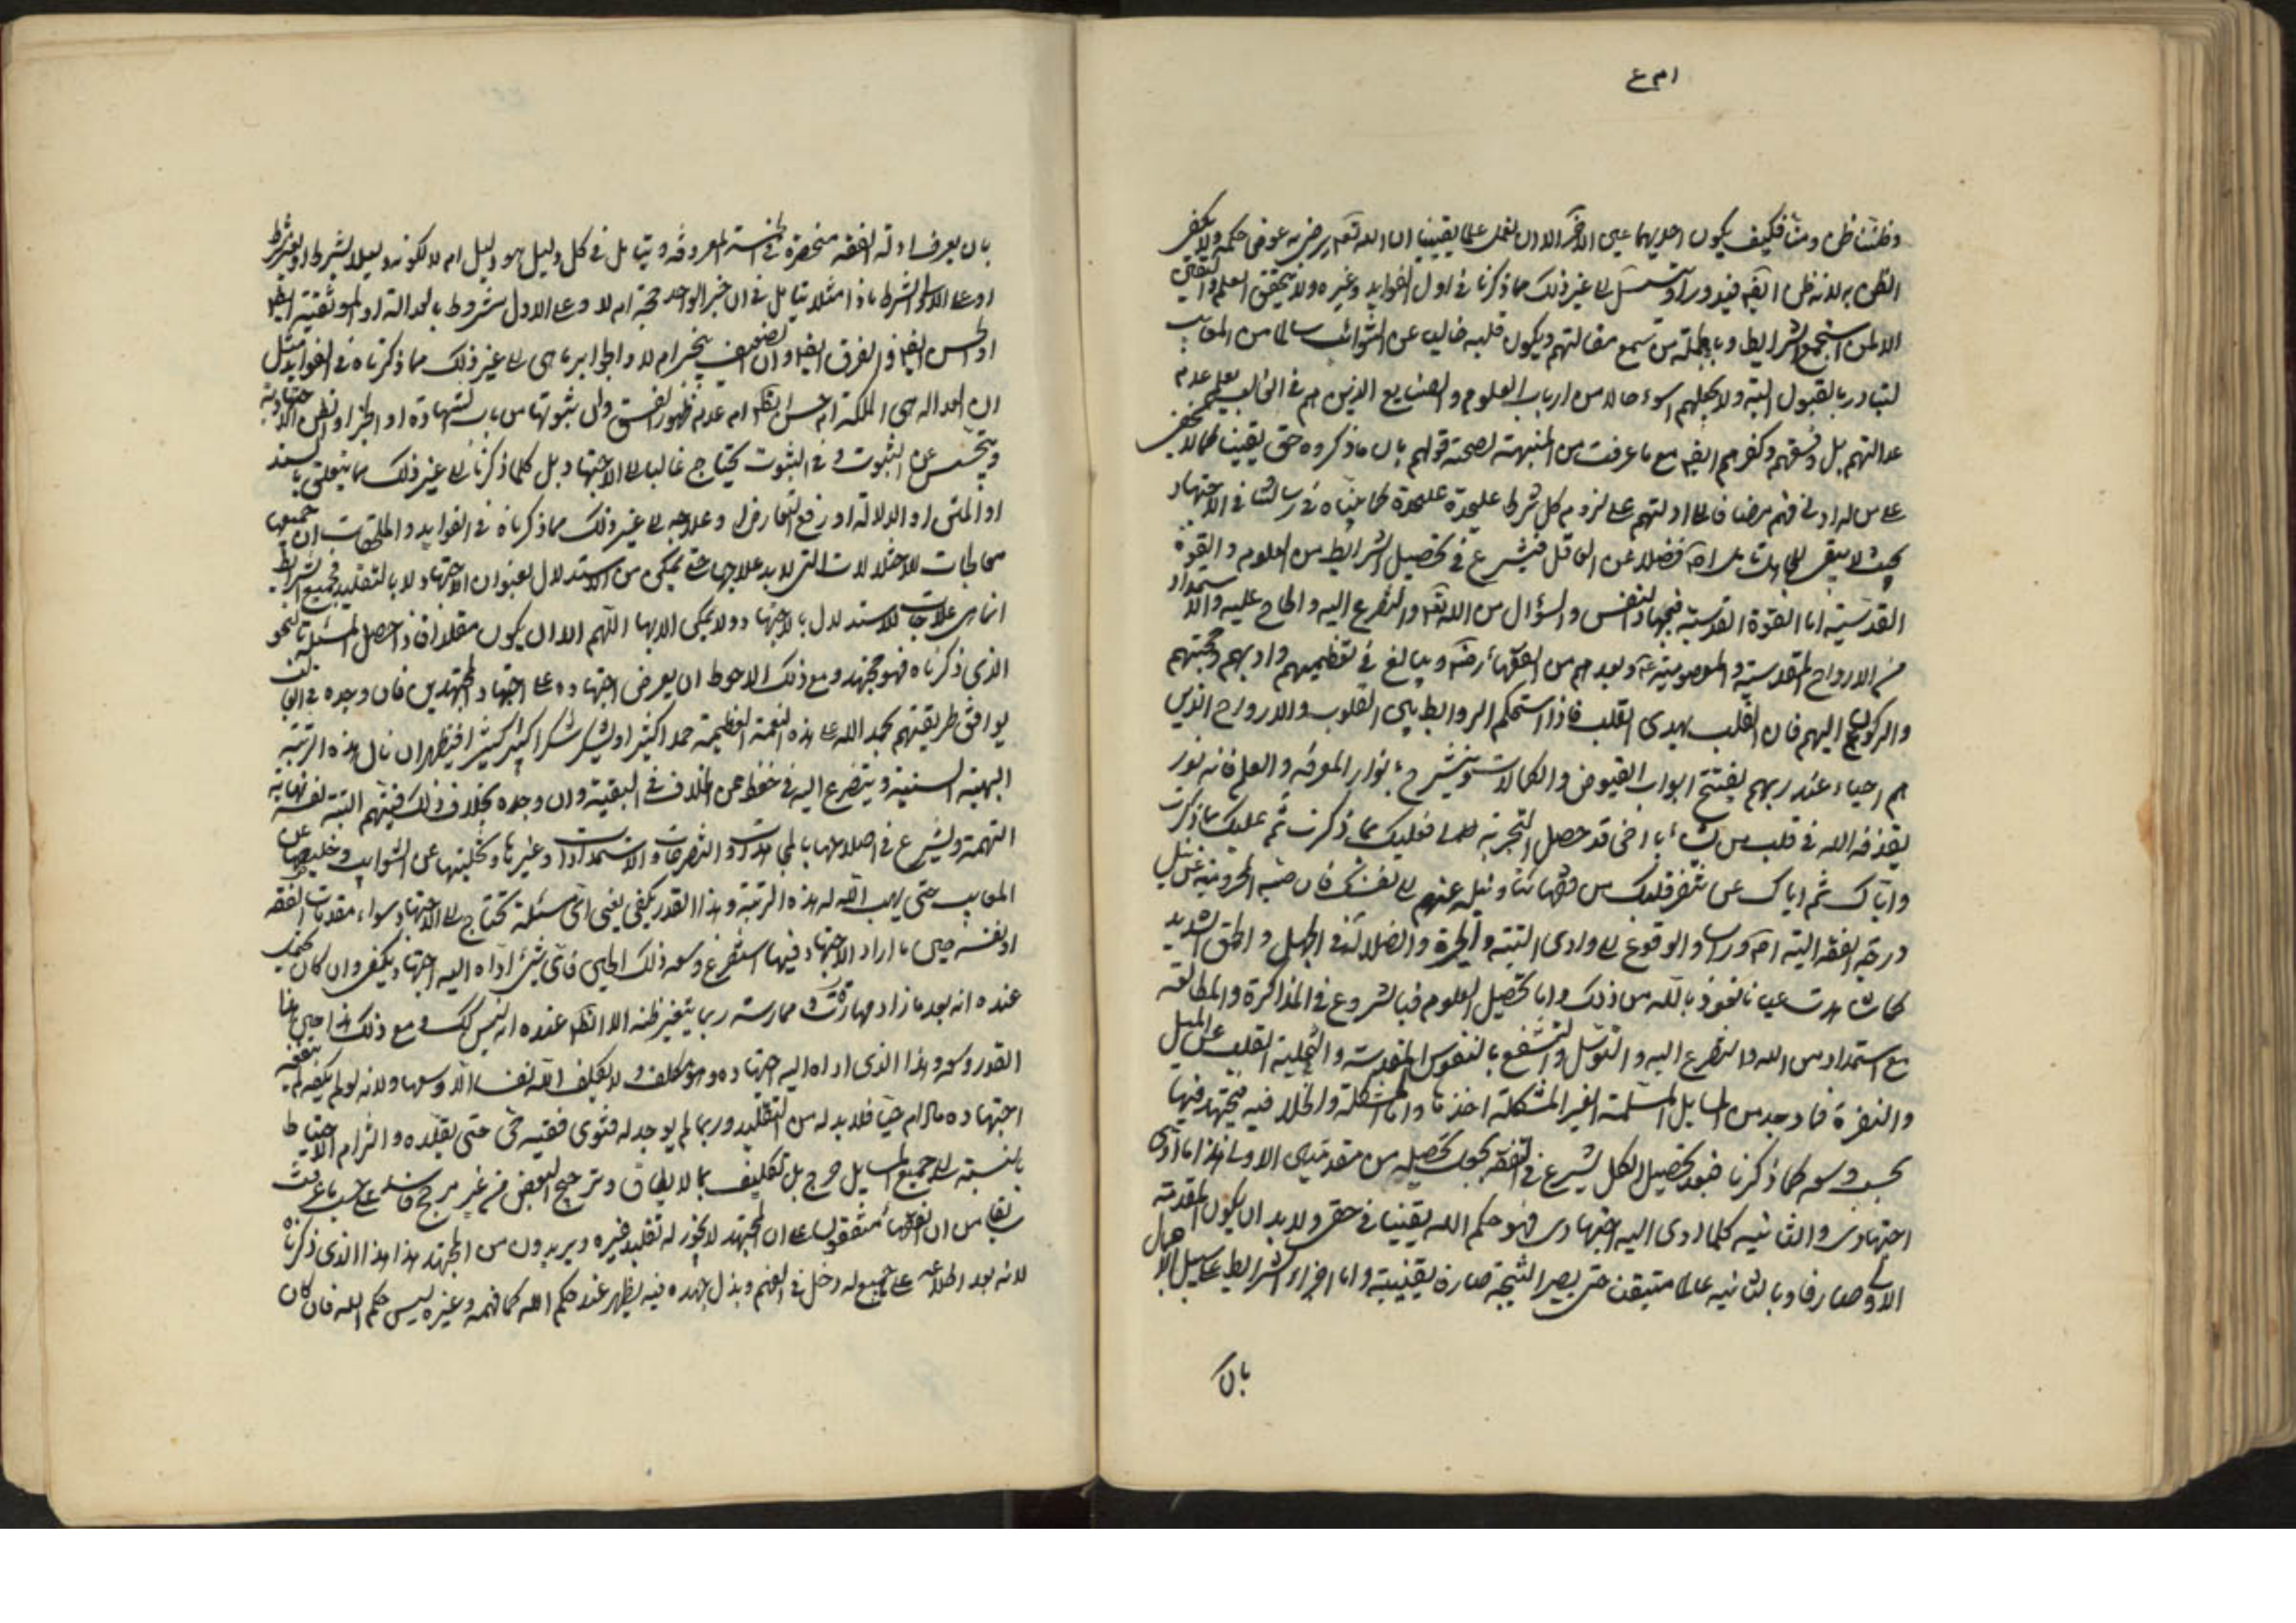 وظننت ظن ومنا فكيف يكون احديهما عين الآخر الا ان نعمل علما يقينيا ان الله تعم يرضى به عوض حكمه ولا يكفى
الظن به لانه ظن ايضه فيدور او يتسلسل الى غير ذلك مما ذكرنا فى اول الفوايد وغيره ولا يتحقق العلم واليقين
الا لمن استجمع الشرايط وبالجملة من تسمع مقالتهم ويكون قلبه خاليا عن الشوائب سالما من المعايب
لتبادر بالقبول البتة ولا يجعلهم اسوء حالا من ارباب العلوم والصنايع الذين هم فى الغالب يعلم عدم
عدالتهم بل وفسقهم وكفرهم ايضه مع ما عرفت من المنبهة لصحة قولهم بان ما ذكروه حق يقينا كما لا يخفى
على من له ادنى فهم مضافا الى ادلتهم على لزوم كل شرط عليحدة عليحدة كما بيناه فى رسالتنا فى الاجتهاد
بحيث لا يبقى للجاهل تامل اصلا فضلا عن العاقل فيشرع فى تحصيل الشرايط من العلوم والقوة
القدسية اما القوة القدسية فبجهاد النفس والسؤال من الله تعم والتضرع اليه والحاح عليه والاستمداد
من الارواح القدسية والمعصومية ع وبعدهم من الفقهاء رض ويبالغ فى تعظيمهم وادبهم ومحبتهم
والركون اليهم فان القلب يهدى القلب فاذا استحكم الروابط بين القلوب والارواح الذين
هم احياء عند ربهم يفتتح ابواب الفيوض والكمالات وينشرح بانوار المعرفة والعلم فانه نور
يقذفه الله فى قلب من يشاء يا اخى قد حصل التجربة لما فعليك بما ذكرت ثم عليك بما ذكرت
واياك ثم اياك عن تنفر قلبك من فقهائنا وميله عنهم الى نفسك فان فيه المحرومية عن نيل
درجة الفقه البتة اصلا ورأسا والوقوع فى وادى التيه والحيرة والضلالة فى الجهل والحمق الشديد
كما شاهدت عيانا نعوذ بالله من ذلك واما تحصيل العلوم فبالشروع فى المذاكرة والمطالعة
مع استمداد من الله والتضرع اليه والتوسل والتشفع بالنفوس المقدسة والتخلية القلب عن الميل
والنفرة فما وجد من المسايل المسلمة الغير المشكلة اخذها واما المشكلة والخلافية فيجتهد فيها
بحسب وسعه كما ذكرنا فبعد تحصيل الكل يشرع فى الفقه بحول تحصيله من مقدمتين الاولى هذا ما ادى
اجتهادى والثانية كلما ادى اليه اجتهادى فهو حكم الله يقينا فى حقى ولا بد ان يكون بالمقدمة
الاولى صارفا وبالثانية عالما متيقنا حتى يصير النتيجة صارة يقينية واما اجزاء الشرايط على سبيل الاجمال
بان
بان يعرف ادلة الفقه منحصرة فى الخمسة المعروفة ويتامل فى كل دليل هو دليل ام لا لكونه دليلا بشرط او بغير شرط
او على الاول الشرط ماذا مثلا يتامل فى ان خبر الواحد حجة ام لا وعلى الاول مشروط بالعدالة او الموثقية ايضا
او الحسن ايضا والفرق ايضا وان الضعيف ينجبر ام لا والجوابر ما هى الى غير ذلك مما ذكرناه فى الفوايد مثل
ان العدالة هى الملكة ام حسن الظاهر ام عدم ظهور الفسق وان ثبوتها من باب الشهادة او الخبر او الظن الاجتهادية
ويتجسس عن الثبوت وفى الثبوت يحتاج غالبا الى الاجتهاد بل كلما ذكرنا الى غير ذلك مما يتعلق بالسند
او المتن او الدلالة او رفع التعارض او علاجه الى غير ذلك مما ذكرناه فى الفوايد والملحقات ان جميعها
معالجات للاختلالات التى لا بد علاجها حتى يمكن من الاستدلال بعنوان الاجتهاد لا بالتقليد فجميع الشرايط
انما هى علاجات للاستدلال بالاجتهاد ولا يمكن الا بها اللهم الا ان يكون مقلدا فاذا حصل المسئلة بالنحو
الذى ذكرناه فهو مجتهد ومع ذلك الاحوط ان يعرض اجتهاده على اجتهاد المجتهدين فان وجده فى الغالب
يوافق طريقتهم يحمد الله على هذه النعمة العظيمة حمدا كثيرا ويشكر شكرا كبيرا كثيرا فيظهر ان نال هذه الرتبة
البهية السنية ويتضرع اليه فى حفظه عن الخلاف فى البقية وان وجده بخلاف ذلك فيتهم البتة نفسه نهاية
التهمة ويشرع فى اصلاحها بالمجاهدات والتضرعات والاستمدادات وغيرها وتخليتها عن الشوايب وتخليصها عن
المعايب حتى يهب الله له هذه الرتبة وهذا القدر يكفى يعنى اى مسئلة تحتاج الى الاجتهاد سواء مقدمات الفقه
او نفسه حين ما اراد الاجتهاد فيها استفرغ وسعه ذلك الحين فاى شىء اداه اليه اجتهاده يكفى وان كان يمكن
عنده انه بعد ما زاد مهارته وممارسته ربما يتغير ظنه الا ان الظاهر عنده انه ليس كك ومع ذلك هذا حين هذا
القدر وسعه وهذا الذى اداه اليه اجتهاده وهو مكلف ولا يكلف الله نفسا الا وسعها ولانه لو لم يكفه لم ينفعه
اجتهاده ما دام حيا فلا بد له من التقليد وربما لم يوجد له فتوى فقيه حى حتى يقلده والتزام الاحتياط
بالنسبة الى جميع المسايل حرج بل تكليف بما لا يطاق وترجيح البعض من غير مرجح فاسد على حسب ما عرفت
سابقا من ان الفقهاء متفقون على ان المجتهد لا يجوز له تقليد غيره ويريدون من المجتهد هذا هذا الذى ذكرناه
لانه بعد اطلاعه على جميع له دخل فى الفهم وبذل جهده فيه يظهر عنده حكم الله كما فهمه وغيره ليس حكم الله فان كان